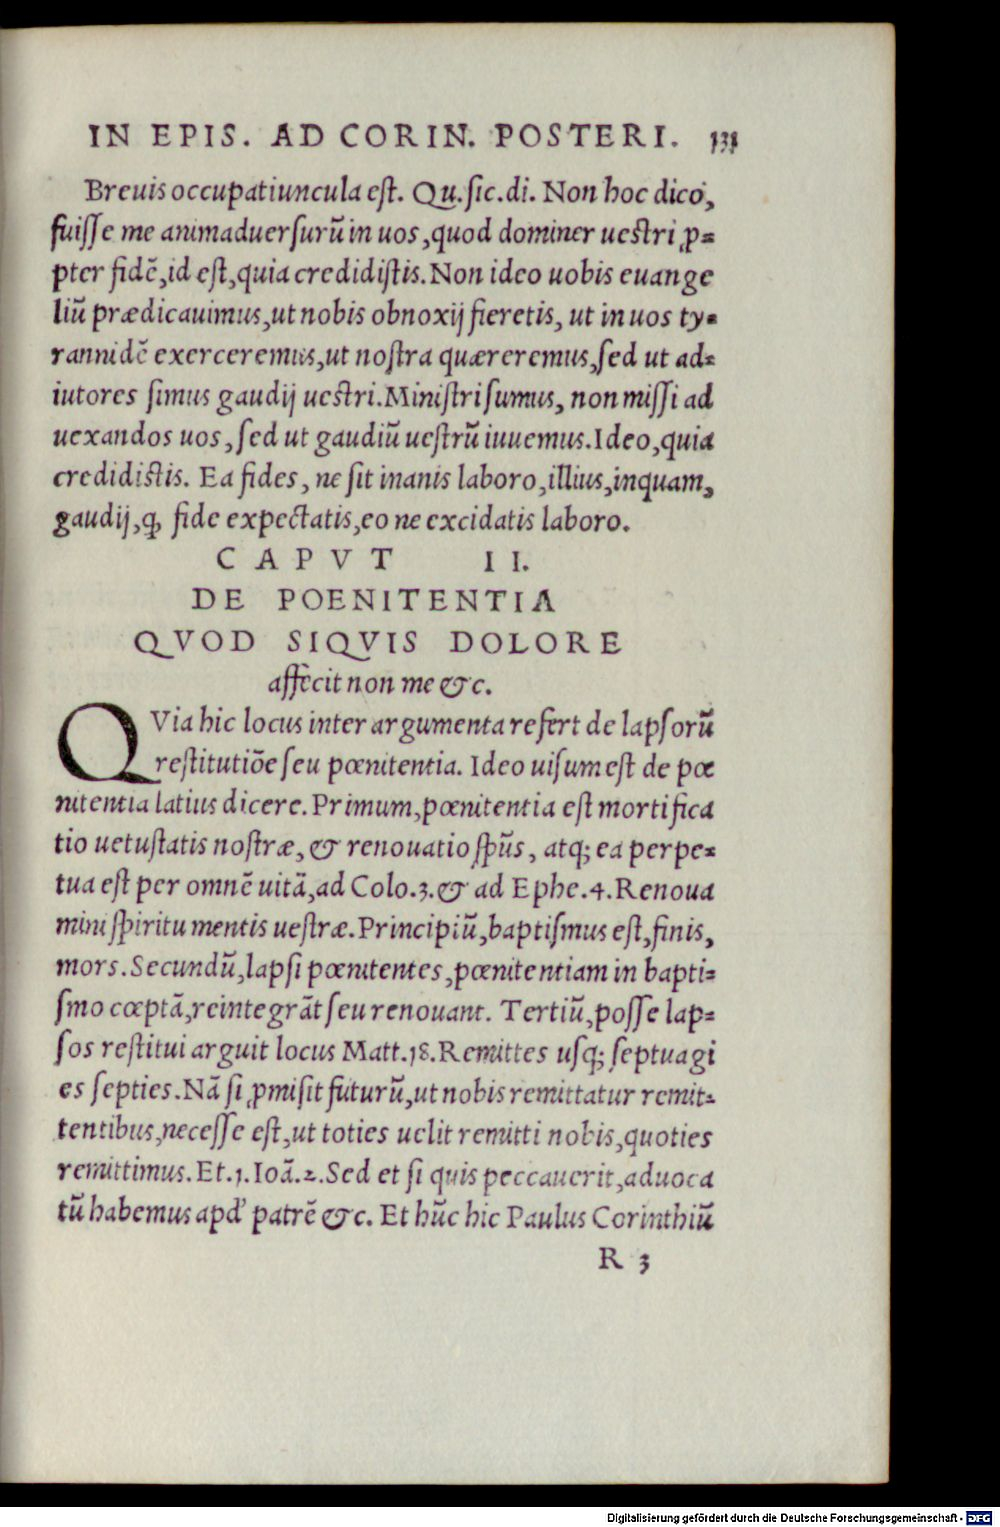 IN EPIS. AD CORIN. POSTERI. 131
Breuis occupatiuncula est. Qu. sic. di. Non hoc dico,
fuisse me animaduersurũ in uos, quod dominer uestri ꝓ=
pter fidẽ, id est, quia credidistis. Non ideo uobis euange
liũ prædicauimus, ut nobis obnoxij fieretis, ut in uos ty=
rannidẽ exerceremus, ut nostra quæreremus, sed ut ad=
iutores simus gaudij uestri. Ministri sumus, non missi ad
uexandos uos, sed ut gaudiũ uestrũ iuuemus. Ideo, quia
credidistis. Ea fides, ne sit inanis laboro, illius, inquam,
gaudij, ꝙ fide expectatis, eo ne excidatis laboro.
CAPVT II.
DE POENITENTIA
QVOD SIQVIS DOLORE
affecit non me &c.
QVia hic locus inter argumenta refert de lapsorũ
restitutiõe seu pœnitentia. Ideo uisum est de pœ
nitentia latius dicere. Primum, pœnitentia est mortifica
tio uetustatis nostræ, & renouatio sp̃us, atq; ea perpe=
tua est per omnẽ uitã, ad Colo. 3. & ad Ephe. 4. Renoua
mini spiritu mentis uestræ. Principiũ, baptismus est, finis,
mors. Secundũ, lapsi pœnitentes, pœnitentiam in bapti=
smo cœptã, reintegrãt seu renouant. Tertiũ, posse lap=
sos restitui arguit locus Matt. 18. Remittes usq; septuagi
es septies. Nã si ꝓmisit futurũ, ut nobis remittatur remit=
tentibus, necesse est, ut toties uelit remitti nobis, quoties
remittimus. Et. 1. Ioã. 2. Sed et si quis peccauerit, aduoca
tũ habemus apd' patrẽ &c. Et hũc hic Paulus Corinthiũ
R 3
Digitalisierung gefördert durch die Deutsche Forschungsgemeinschaft - DFG